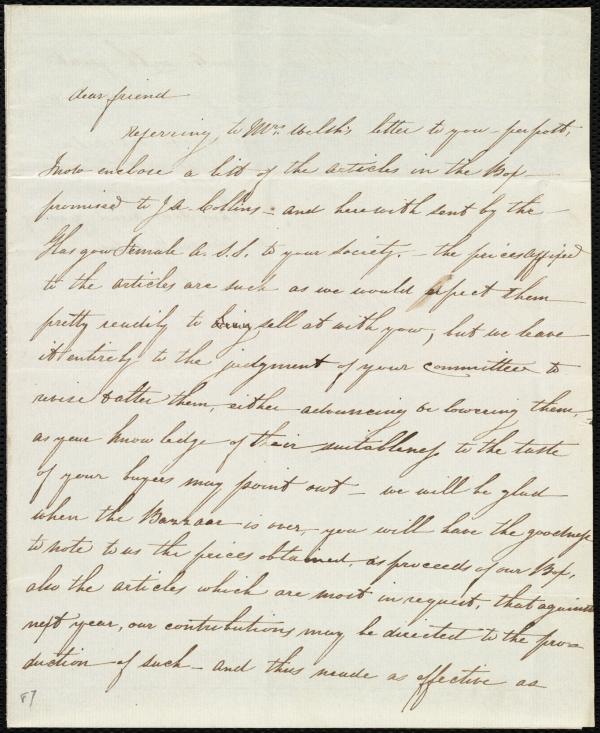 dear friend
referring to Mrs. Welsh's letter to you per post,
I now enclose a list of the articles in the Box
promised to J A Collins - and herewith sent by the
Glasgow Female A. S. S. to your society. - the prices affixed
to the articles are such as we would expect them
pretty readily to bring sell at with you, but we leave
it entirely to the judgment of your committee to
revise & alter them, either advancing or lowering them,
as your knowledge of their suitableness to the taste
of your buyers may point out - we will be glad
when the Bazzaar is over, you will have the goodness
to note to us the prices obtained, as proceeds of our Box,
also the articles which are most in request, that against
next year, our contributions may be directed to the pro=
duction of such - and thus made as effective as
87